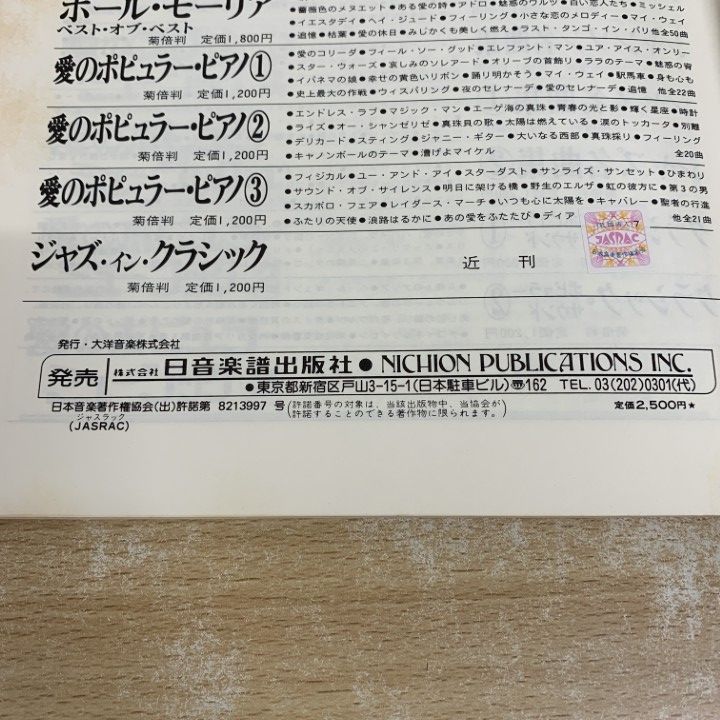 ポール・モーリア
ベスト・オブ・ベスト
菊倍判 定価1,800円
●薔薇色のメヌエット●ある愛の詩●アドロ●魅惑のワルツ●白い恋人たち●ミッシェル
●イエスタデイ●ヘイ・ジュード●フィーリング●小さな恋のメロディー●マイ・ウェイ
●追憶●枯葉●愛の休日●みじかくも美しく燃え●ラスト・タンゴ・イン・パリ 他全50曲
愛のポピュラー・ピアノ①
菊倍判 定価1,200円
●愛のコリーダ●フィール・ソー・グッド●エレファント・マン●ユア・アイズ・オンリー
●スター・ウォーズ●哀しみのソレアード●オリーブの首飾り●ララのテーマ●魅惑の宵
●イパネマの娘●幸せの黄色いリボン●踊り明かそう●マイ・ウェイ●駅馬車●身も心も
●史上最大の作戦●ウィスパリング●夜のセレナーデ●愛のセレナーデ●追憶 他全22曲
愛のポピュラー・ピアノ②
菊倍判 定価1,200円
●エンドレス・ラブ●マジック・マン●エーゲ海の真珠●青春の光と影●輝く星座●時計
●ライズ●オー・シャンゼリゼ●真珠貝の歌●太陽は燃えている●涙のトッカータ●別離
●デリカード●スティング●ジャニー・ギター●大いなる西部●真珠採り●フィーリング
●キャノンボールのテーマ●漕げよマイケル 全20曲
愛のポピュラー・ピアノ③
菊倍判 定価1,200円
●フィジカル●ユー・アンド・アイ●スターダスト●サンライズ・サンセット●ひまわり
●サウンド・オブ・サイレンス●明日に架ける橋●野生のエルザ●虹の彼方に●第3の男
●スカボロ・フェア●レイダース・マーチ●いつも心に太陽を●キャバレー●聖者の行進
●ふたりの天使●浪路はるかに●あの愛をふたたび●ディア 他全21曲
ジャズ・イン・クラシック
菊倍判 定価1,200円
近刊
JASRAC
発行・大洋音楽株式会社
発売 株式会社 日音楽譜出版社● NICHION PUBLICATIONS INC.
●東京都新宿区戸山3-15-1(日本駐車ビル)〠162 TEL.03(202)0301(代)
日本音楽著作権協会(出)許諾第 8213997 号 (許諾番号の対象は、当該出版物中、当協会が
許諾することのできる著作物に限られます。)
定価2,500円★
ジャスラック
(JASRAC)